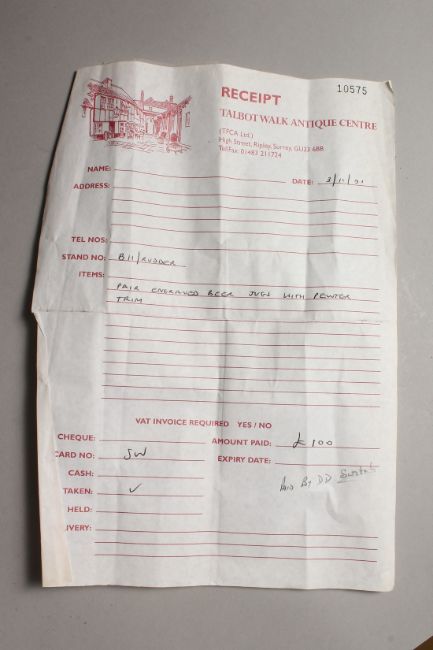 RECEIPT 10575
TALBOT WALK ANTIQUE CENTRE
(TFCA Ltd.)
High Street, Ripley, Surrey, GU23 6BB
Tel/Fax: 01483 211724
NAME:
ADDRESS: DATE: 3/11/01
TEL NOS:
STAND NO: B11/RUDDER
ITEMS:
PAIR ENGRAVED BEER JUGS WITH PEWTER
TRIM
VAT INVOICE REQUIRED YES / NO
CHEQUE: AMOUNT PAID: £100
CARD NO: SW EXPIRY DATE:
CASH: PAID BY DD
TAKEN: ✓
HELD:
IVERY: